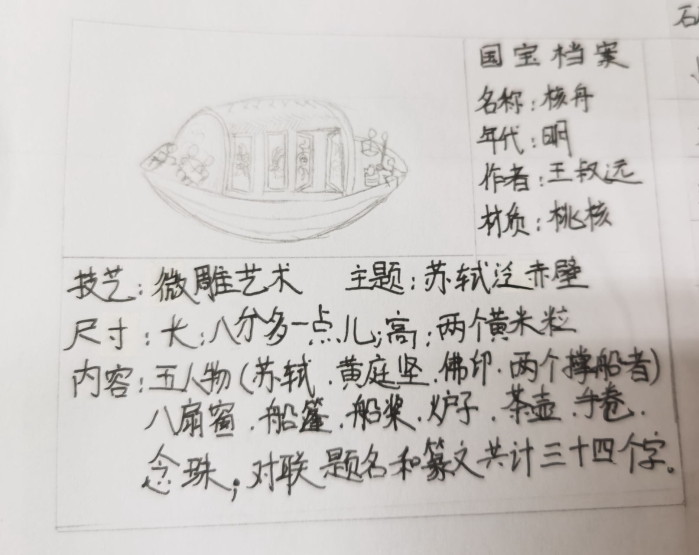 国宝档案
名称:核舟
年代:明
作者:王叔远
材质:桃核
技艺:微雕艺术 主题:苏轼泛赤壁
尺寸:长:八分多一点儿;高:两个黄米粒
内容:五人物(苏轼.黄庭坚.佛印.两个撑船者)
八扇窗.船篷.船桨.炉子.茶壶.手卷.
念珠;对联题名和篆文共计三十四个字。